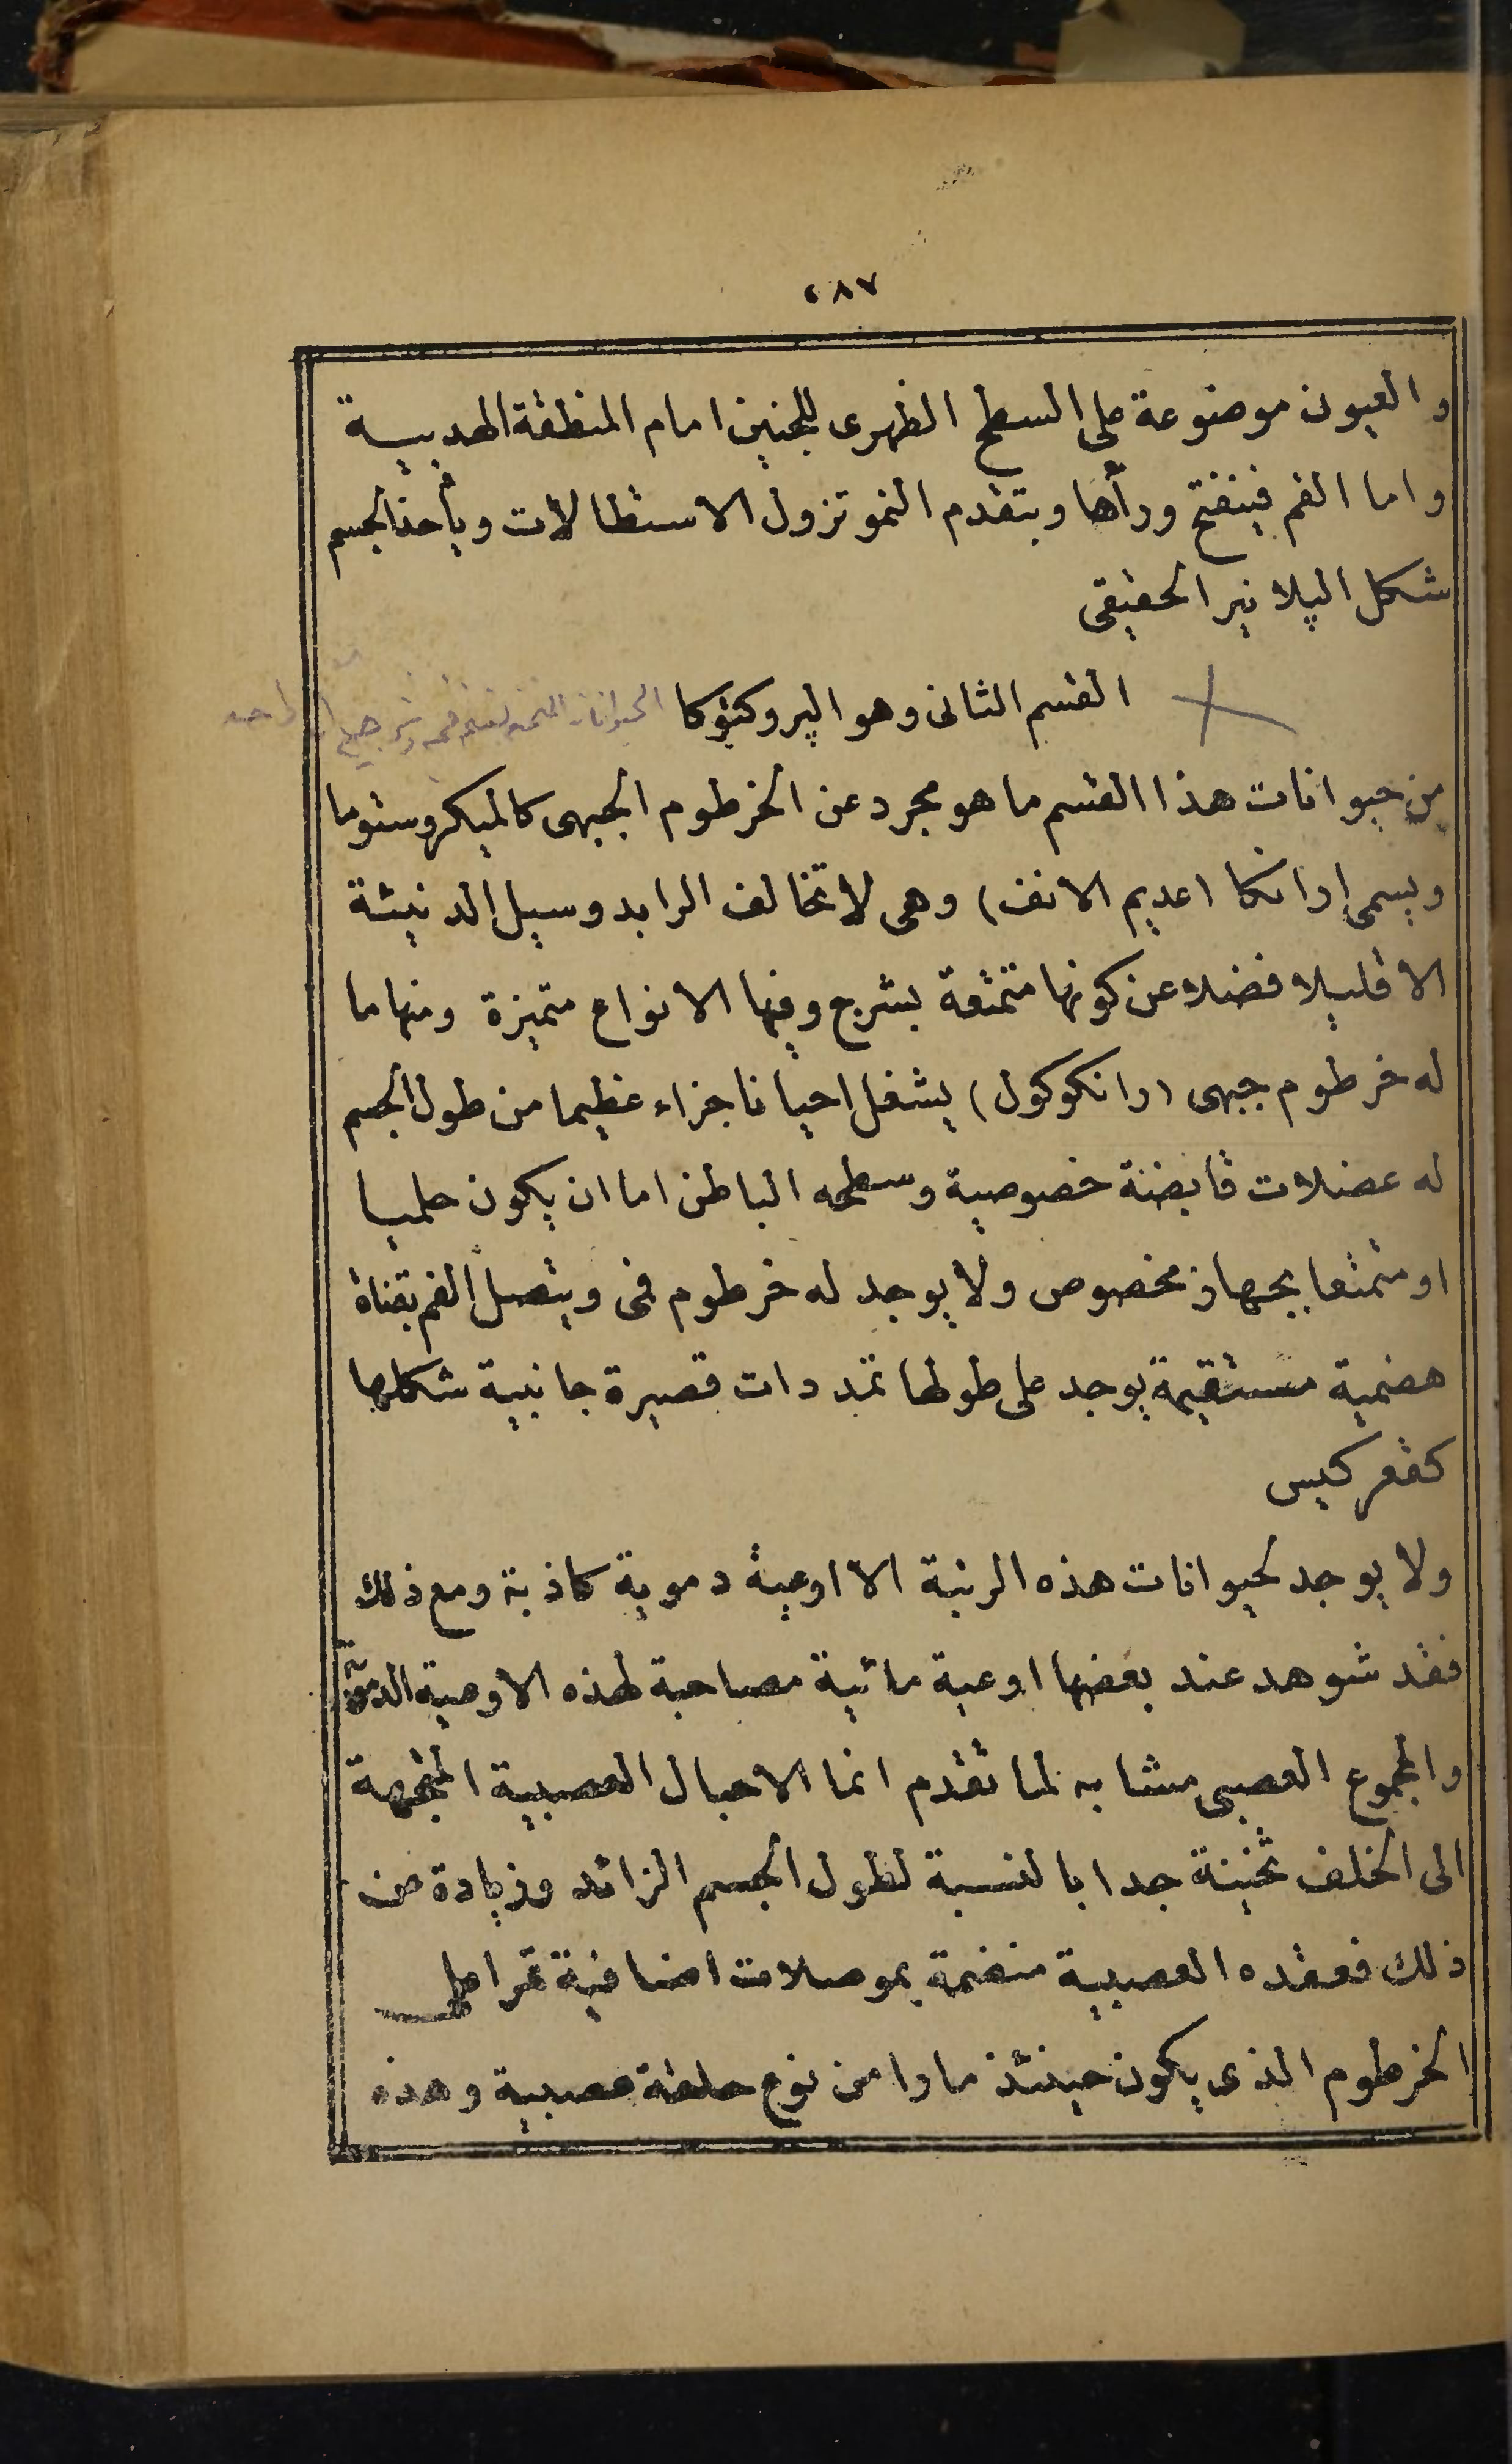 ٢٨٧
والعيون موضوعة على السطح الظهرى للجنين امام المنطقة الهدبية
واما الفم فينفتح ورأها وبتقدم النمو تزول الاستطالات ويأخذ الجسم
شكل الپلانير الحقيقى
القسم الثانى وهو الپروكتوكا الحيوانات
من حيوانات هذا القسم ما هو مجرد عن الخرطوم الجبهى كالميكروستوما
ويسمى ارانكا (عديم الانف) وهى لا تخالف الرابدوسيل الدنيئة
الا قليلا فضلا عن كونها متمتعة بشرج وفيها الانواع متميزة ومنها ما
له خرطوم جبهى (رانكوكول) يشغل احيانا جزاء عظيما من طول الجسم
له عضلات قابضة خصوصية وسطحه الباطن اما ان يكون حلميا
او متمتعا بجهاز مخصوص ولا يوجد له خرطوم فمى ويتصل الفم بقناة
هضمية مستقيمة يوجد على طولها تمددات قصيرة جانبية شكلها
كقعر كيس
ولا يوجد لحيوانات هذه الرتبة الا اوعية دموية كاذبة ومع ذلك
فقد شوهد عند بعضها اوعية مائية مصاحبة لهذه الاوعية الدموية
والمجموع العصبى مشابه لما تقدم انما الاحبال العصبية المتجهة
الى الخلف ثخينة جدا بالنسبة لطول الجسم الزائد وزيادة عن
ذلك فعقده العصبية منضمة بموصلات اضافية تمر اعلى
الخرطوم الذى يكون حينئذ مارا من نوع حلقة عصبية وهذه